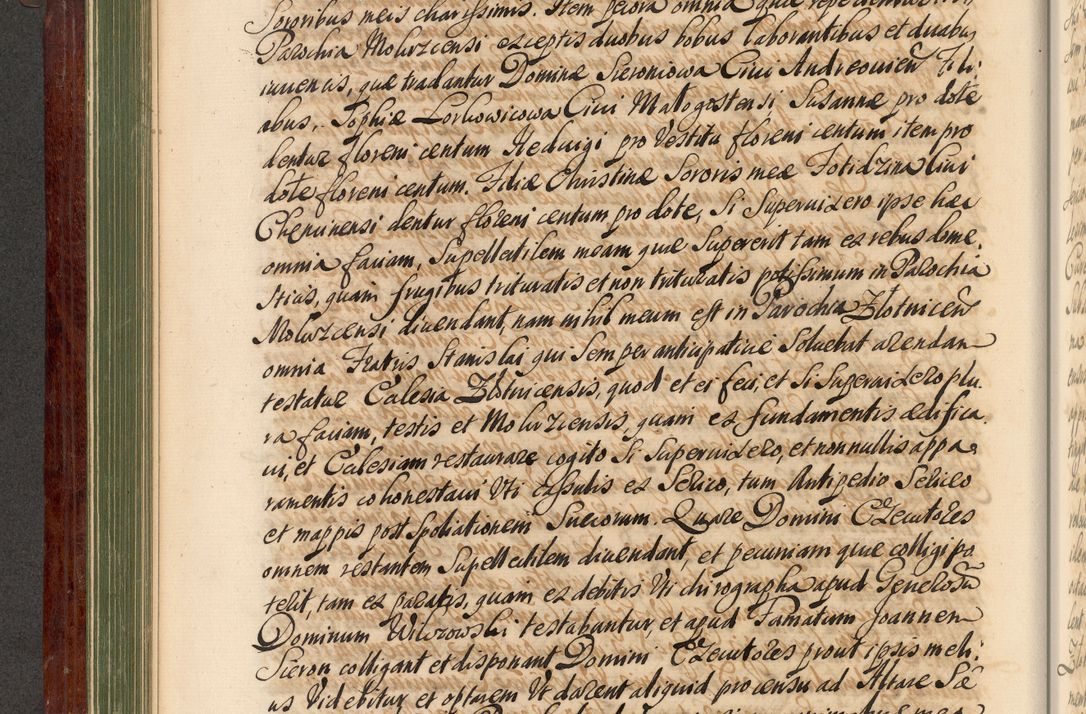 Sororibus meis charissimis. Item pecora omnia quæ
Parochia Molwzcensi exceptis duobus bobus laborantibus et duabus
iuuencis, quæ tradantur Dominæ Sieroniowa Ciui Andreouien Fili:
abus, Sophiæ Lorkowicowa Ciui Malogostensi Susannæ pro dote
dentur floreni centum Heduigi pro Vestitu floreni centum item pro
dote floreni centum. Filiæ Christinæ Sororis meæ Fotidzina Ciui
Chencinensi dentur floreni centum pro dote, Si Superuixero ipse hæc
omnia faciam, Supellectilem meam quæ Supererit tam ex rebus dome.
sticis, quam frugibus trituratis et non trituratis potissimum in Parochia
Molwzcensi diuendant, nam nihil meum est in Parochia Zlotnicen
omnia Fratris Stanislai qui Semper anticipatiue Soluebat arendam
testatur Ecclesia Zlotnicensis, quod et ei feci, et Si Superuixero plu
ra faciam, testis et Molwzcensis, quam ex fundamentis ædifica
ui, et Ecclesiam restaurare cogito Si Superuixero, et nonnullis appa
ramentis cohonestaui Vti Cassulis ex Serico, tum Antipedio Sericeo
et mappis post Spoliationem Suecorum. Quare Domini Executores
omnem restantem Supellectilem diuendant, et pecuniam quæ colligi po
terit, tam ex paratis, quam ex debitis Vti chirographa apud Generosum
Dominum Wilczowski testabuntur, et apud Famatum Joannem
Sieron colligant et disponant Domini Executores prout ipsis meli:
us Videbitur et optarem Vt darent aliquid pro censu ad Altare Sæ